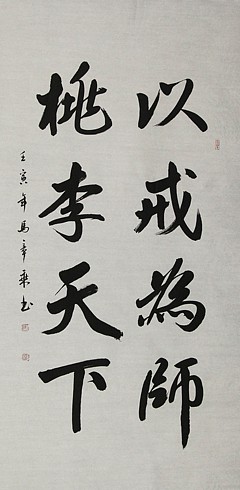 以戒為師
桃李天下
壬寅年馬幸乘书